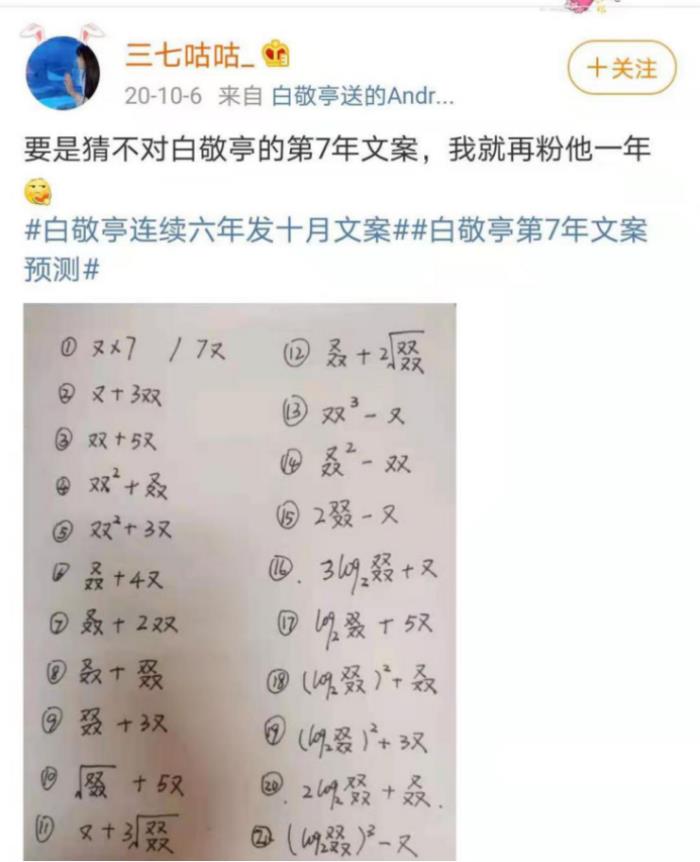 三七咕咕_
20-10-6 来自 白敬亭送的Andr...
+关注
要是猜不对白敬亭的第7年文案，我就再粉他一年
#白敬亭连续六年发十月文案##白敬亭第7年文案
预测#
① 又×7 / 7又
② 又+3双
③ 双+5又
④ 双²+叒
⑤ 双²+3又
⑥ 叒+4又
⑦ 叒+2双
⑧ 叒+叕
⑨ 叕+3又
⑩ √叕+5又
⑪ 又+3√叕
⑫ 叒+2√叕
⑬ 双³-又
⑭ 叒²-双
⑮ 2叕-又
⑯. 3log₂叕+又
⑰ log₂叕+5又
⑱ (log₂叕)²+叒
⑲ (log₂叕)²+3又
⑳. 2log₂叕+叒.
㉑ (log₂叕)³-又